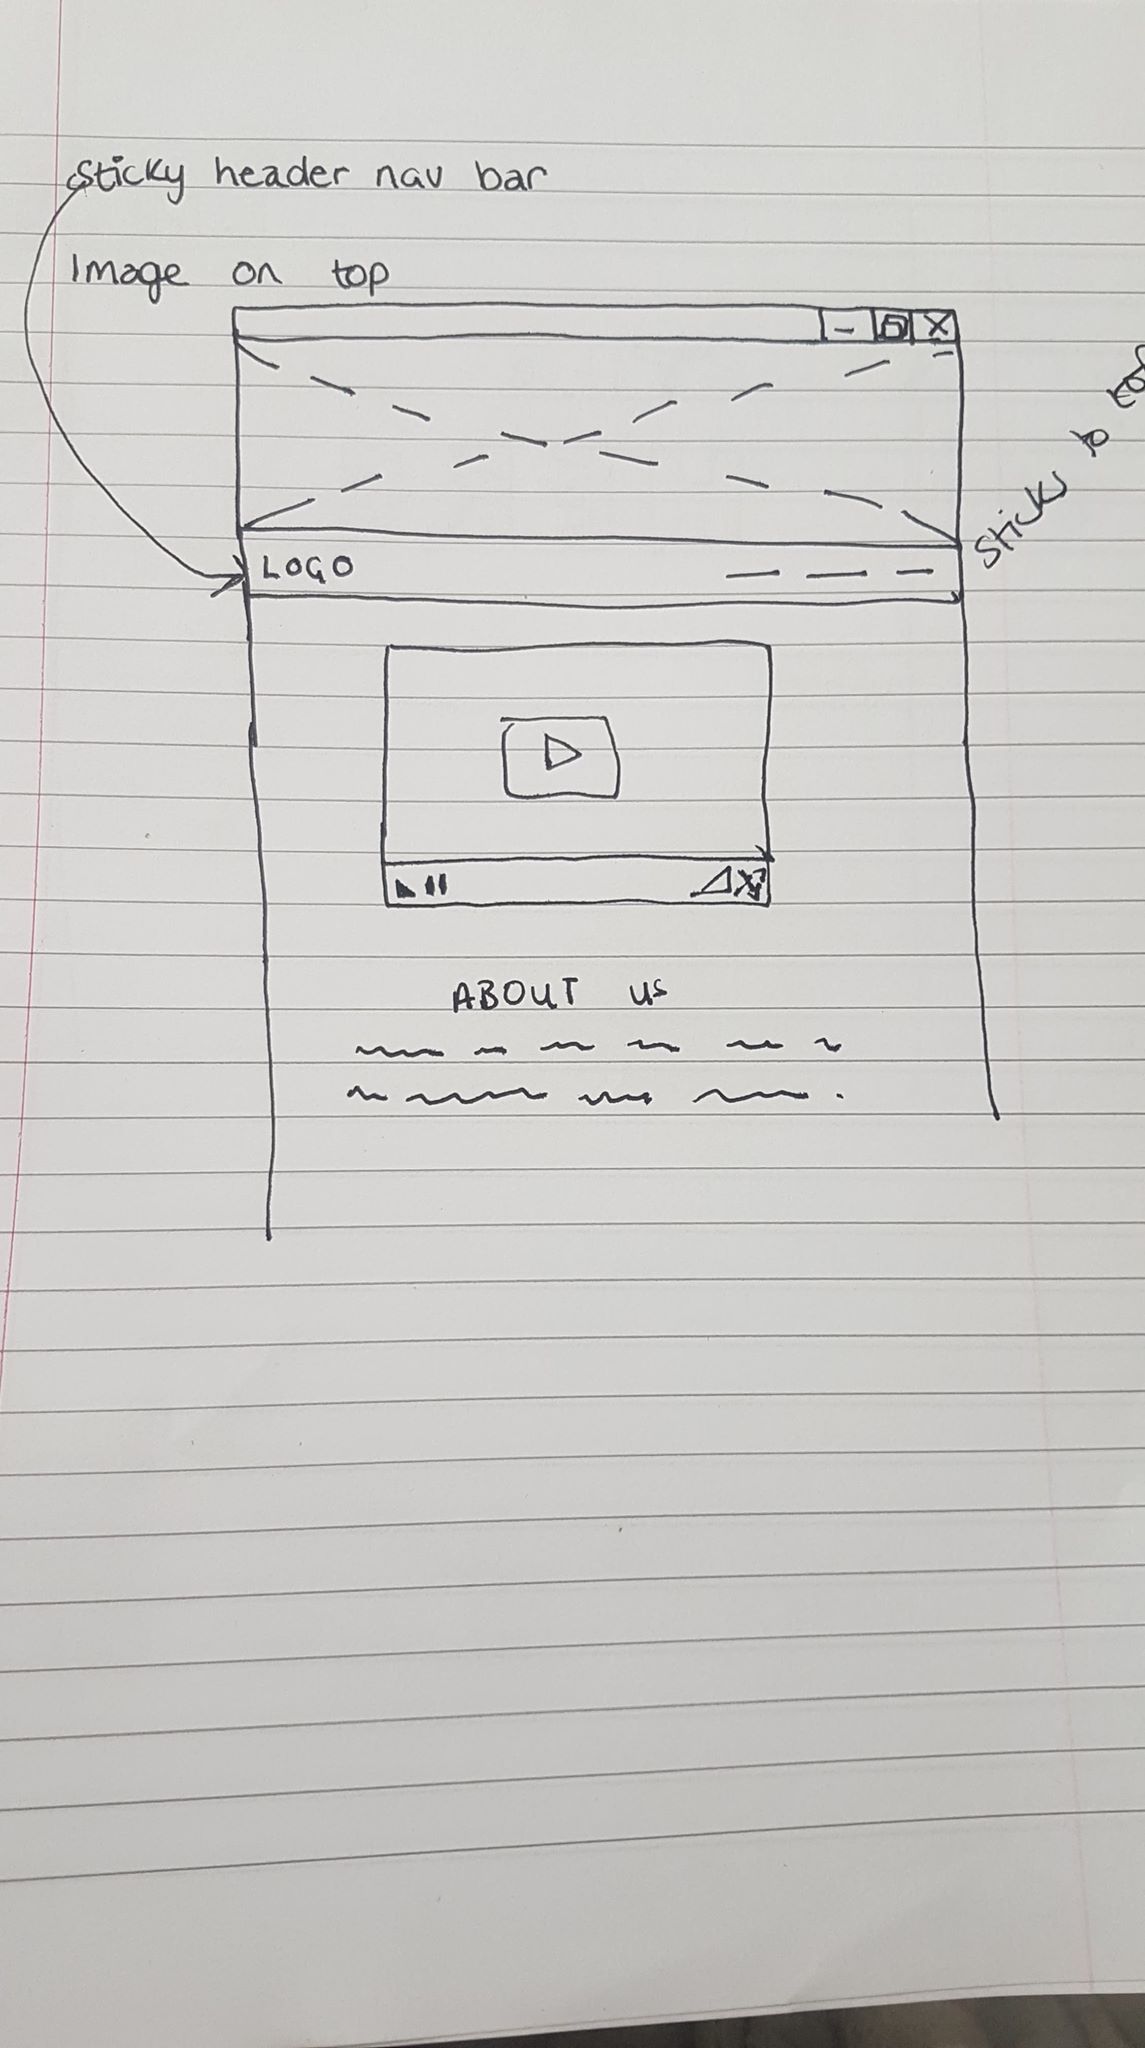 Sticky header nav bar
Image on top
Sticks to
LOGO
ABOUT US